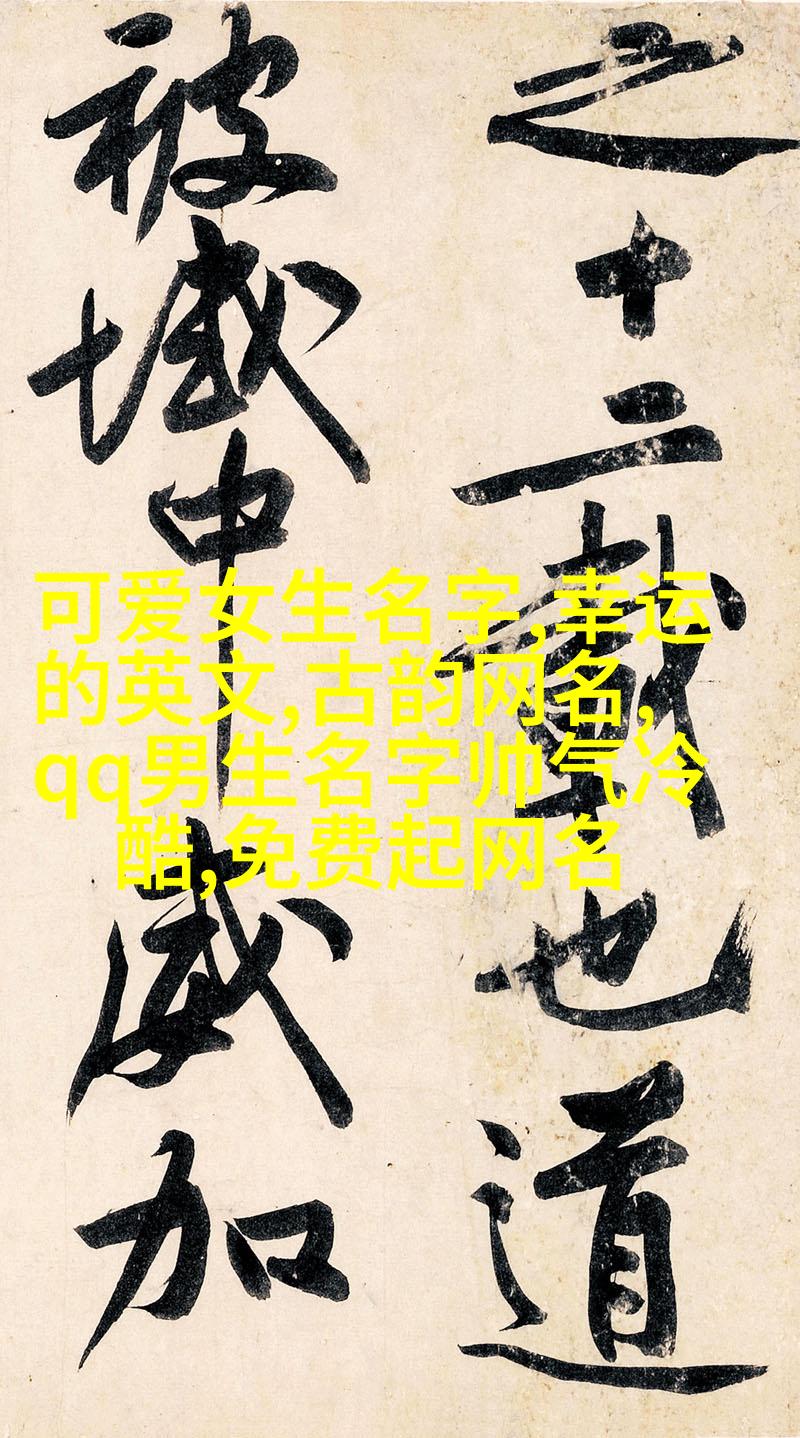 之十二載也道
被域中威加
可爱女生名字,幸运
的英文,古韵网名,
qq男生名字帅气冷
酷,免费起网名